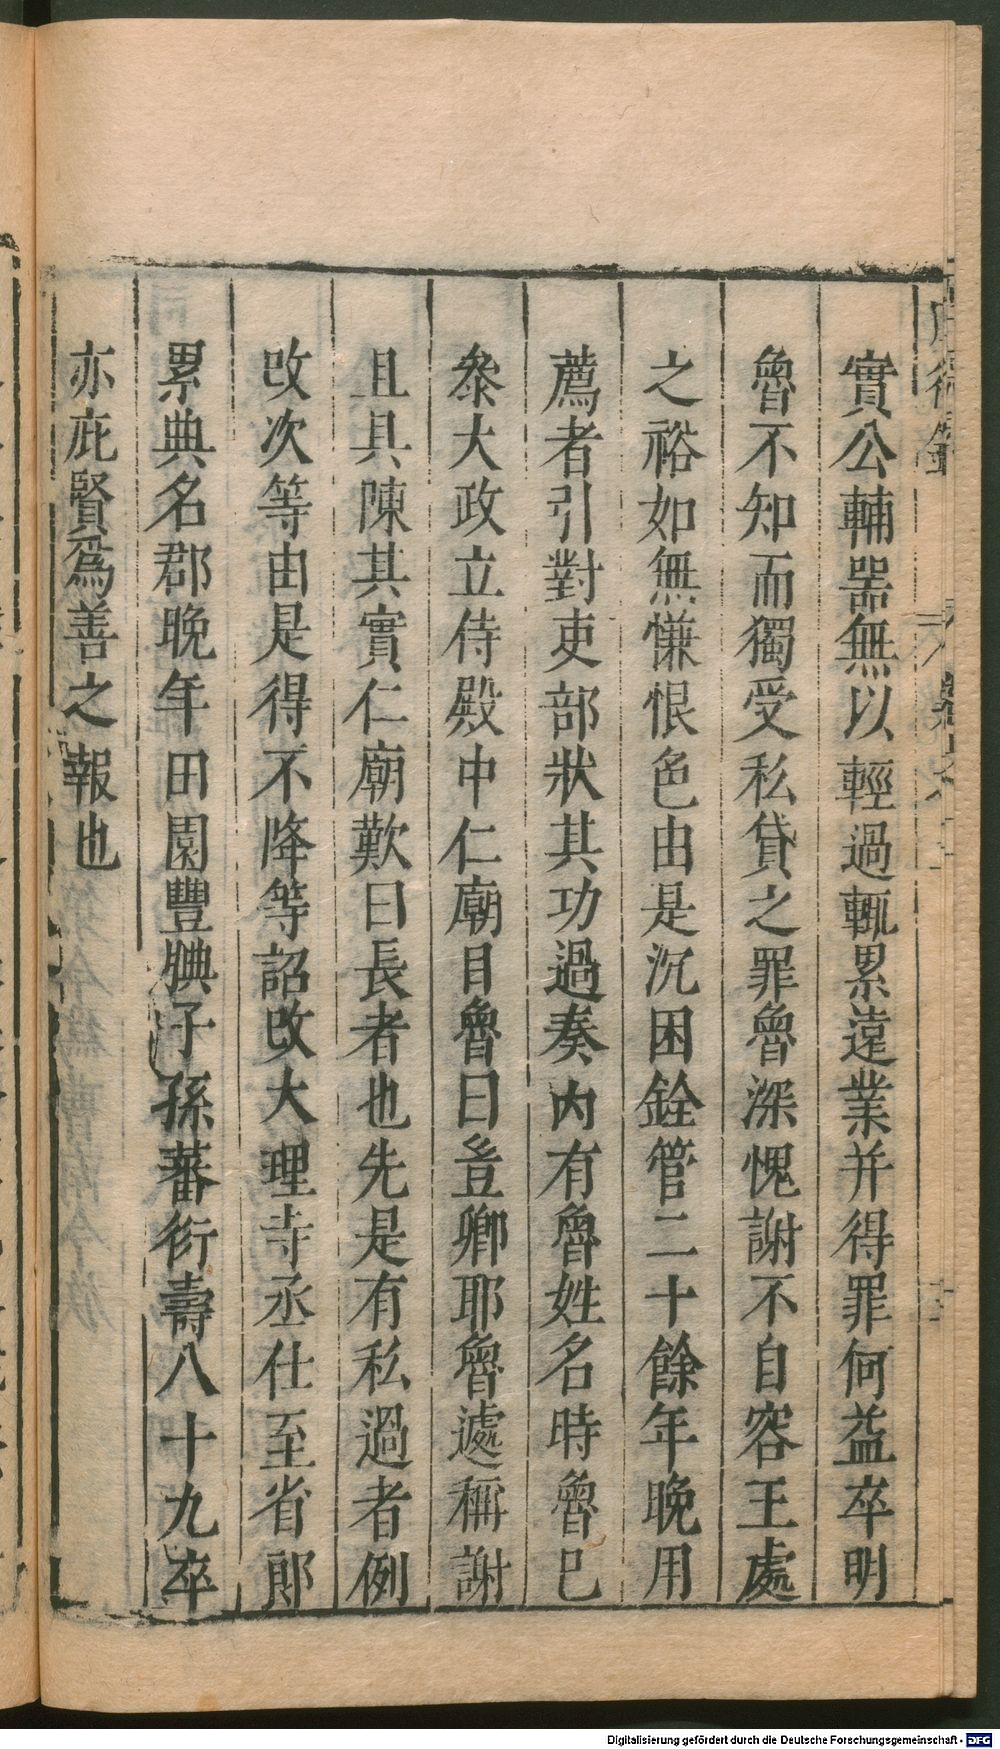 實公輔噐無以輕過輒累遠業并得罪何益卒明
魯不知而獨受私貸之罪魯深愧謝不自容王處
之裕如無慊恨色由是沉困銓管二十餘年晚用
薦者引對吏部狀其功過奏內有魯姓名時魯已
叅大政立侍殿中仁廟目魯曰豈卿耶魯遽稱謝
且具陳其實仁廟歎曰長者也先是有私過者例
改次等由是得不降等詔改大理寺丞仕至省郎
累典名郡晚年田園豐腆子孫蕃衍壽八十九卒
亦庇賢爲善之報也
Digitalisierung gefördert durch die Deutsche Forschungsgemeinschaft - DFG